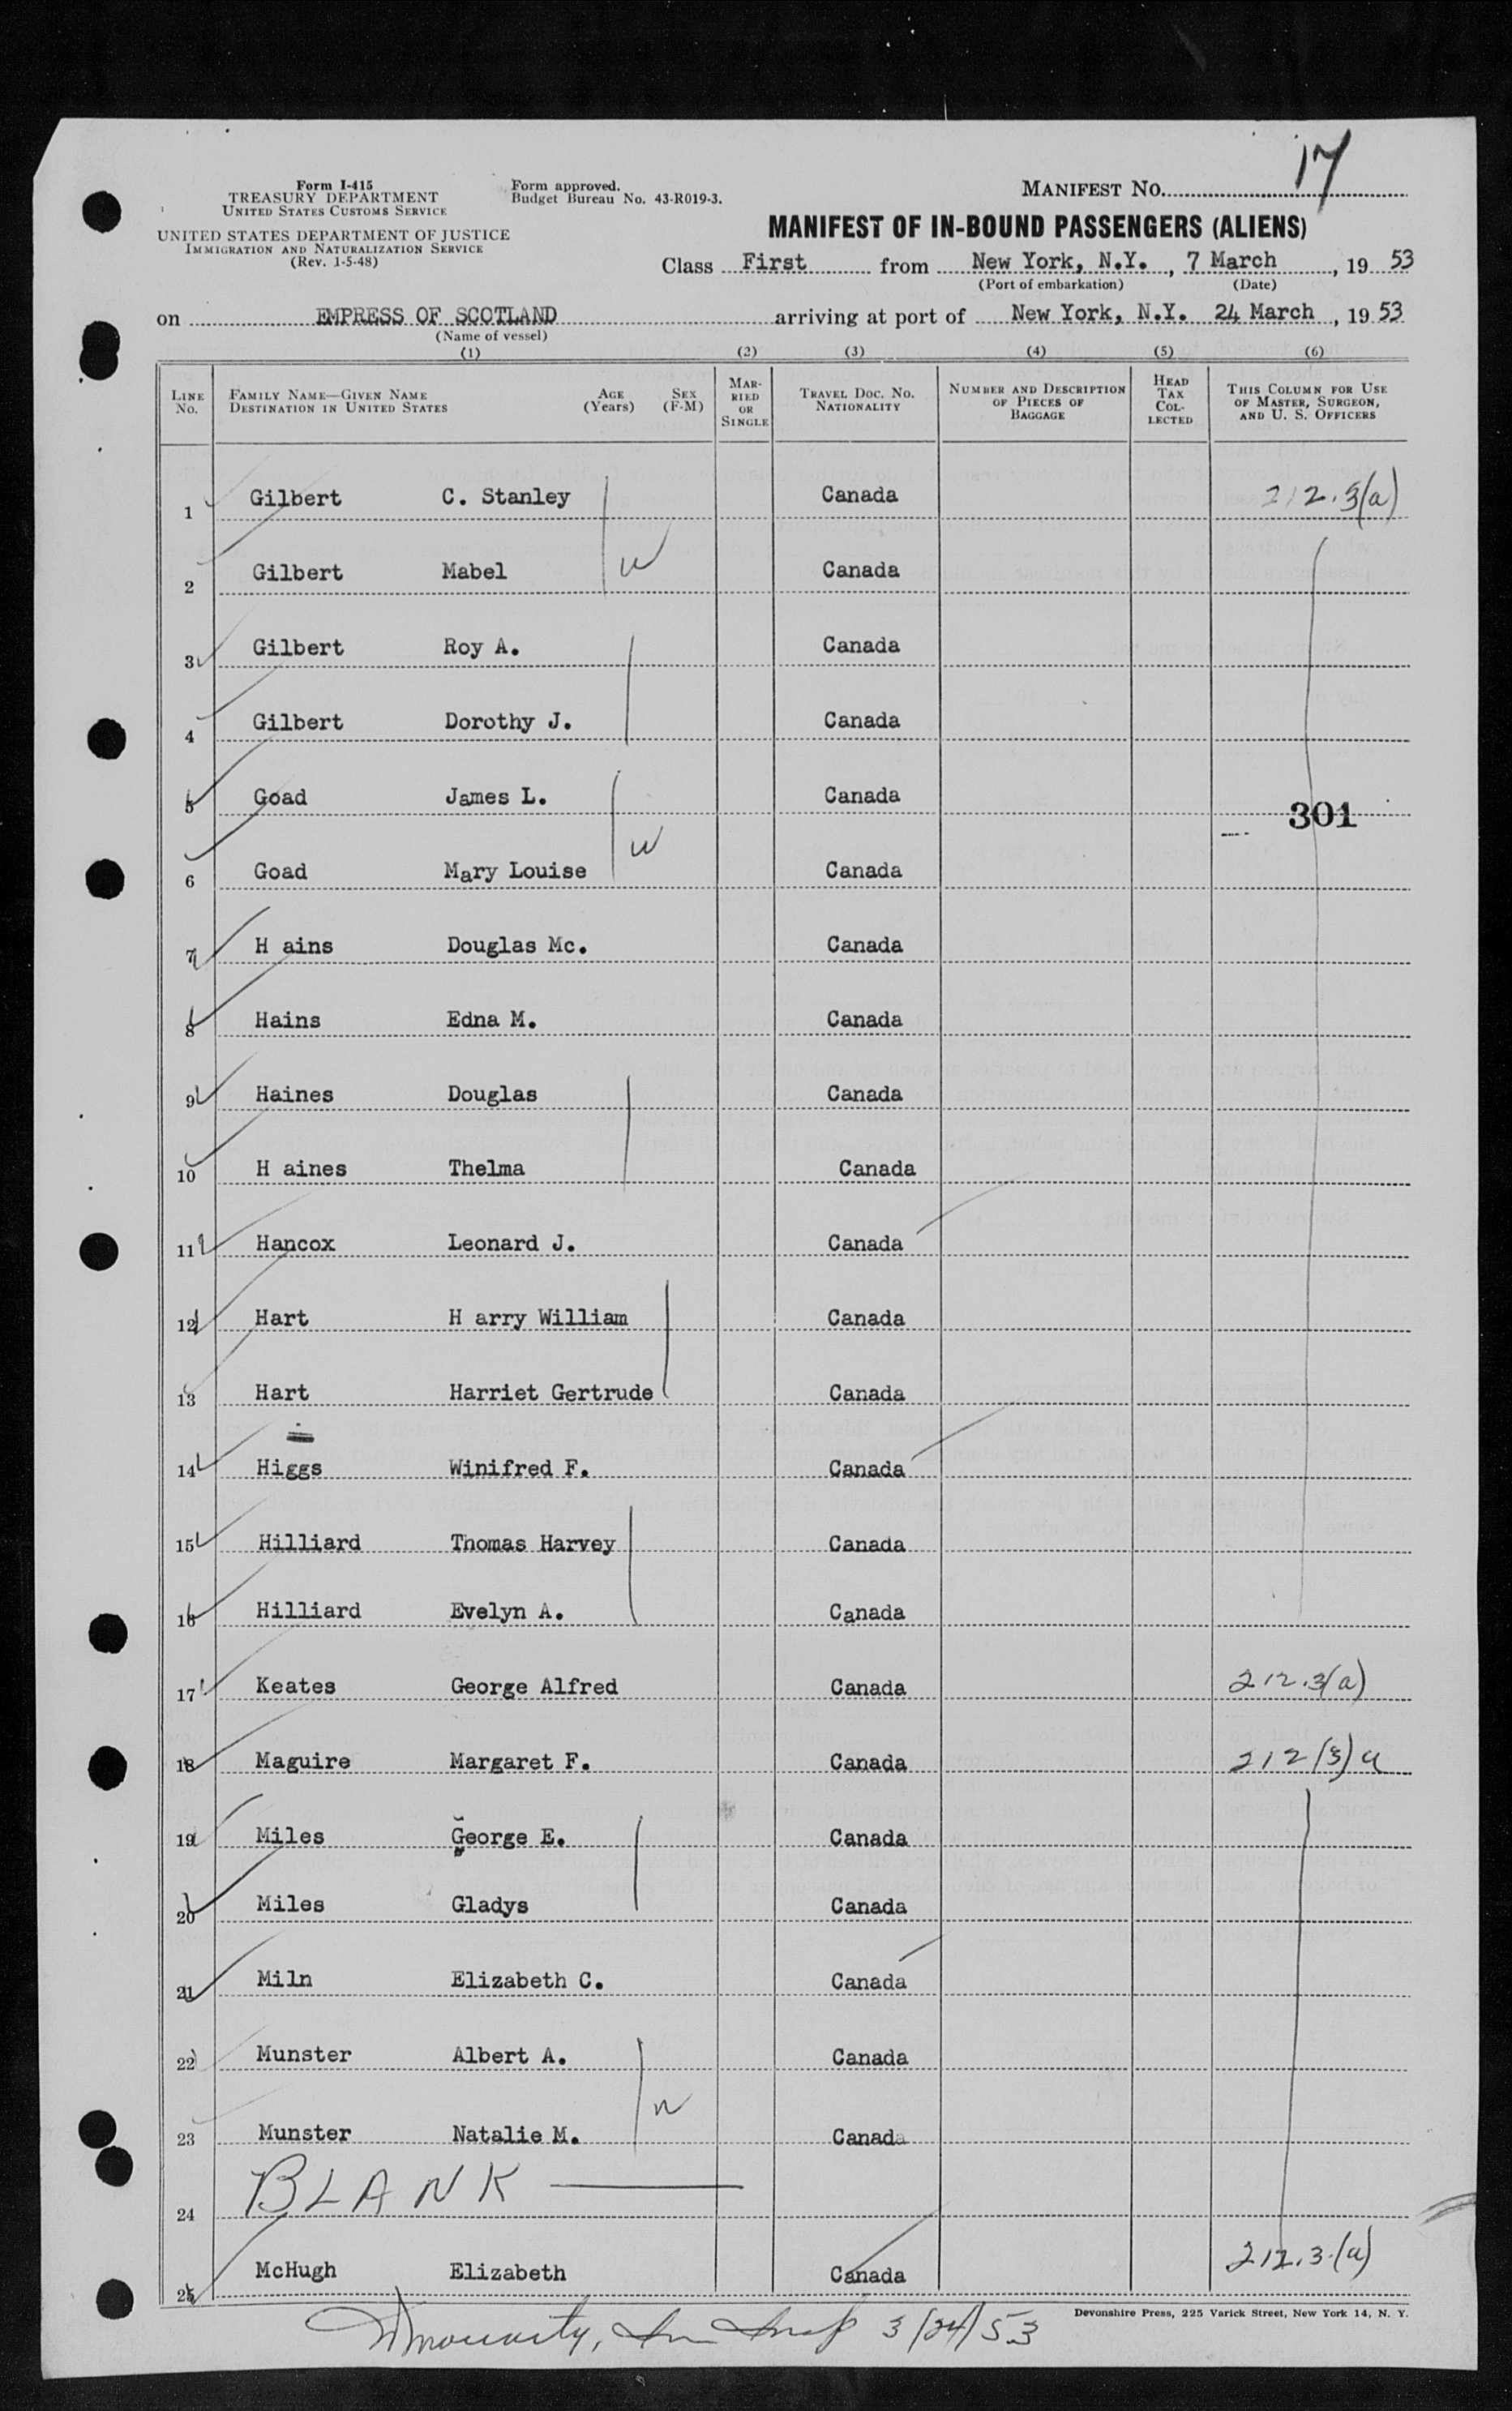 17
Form I-415
TREASURY DEPARTMENT
UNITED STATES CUSTOMS SERVICE
Form approved.
Budget Bureau No. 43-R019-3.
MANIFEST NO.
UNITED STATES DEPARTMENT OF JUSTICE
IMMIGRATION AND NATURALIZATION SERVICE
(Rev. 1-5-48)
MANIFEST OF IN-BOUND PASSENGERS (ALIENS)
Class First from New York, N.Y., 7 March, 19 53
(Port of embarkation) (Date)
on EMPRESS OF SCOTLAND arriving at port of New York, N.Y. 24 March, 19 53
(Name of vessel)
(1) (2) (3) (4) (5) (6)
LINE NO. FAMILY NAME—GIVEN NAME DESTINATION IN UNITED STATES AGE (Years) SEX (F-M) MARRIED OR SINGLE TRAVEL DOC. NO. NATIONALITY NUMBER AND DESCRIPTION OF PIECES OF BAGGAGE HEAD TAX COLLECTED THIS COLUMN FOR USE OF MASTER, SURGEON, AND U. S. OFFICERS
1 Gilbert C. Stanley Canada 212.3(a)
2 Gilbert Mabel W Canada
3 Gilbert Roy A. Canada
4 Gilbert Dorothy J. Canada
5 Goad James L. Canada
301
6 Goad Mary Louise W Canada
7 H ains Douglas Mc. Canada
8 Hains Edna M. Canada
9 Haines Douglas Canada
10 H aines Thelma Canada
11 Hancox Leonard J. Canada
12 Hart H arry William Canada
13 Hart Harriet Gertrude Canada
14 Higgs Winifred F. Canada
15 Hilliard Thomas Harvey Canada
16 Hilliard Evelyn A. Canada
17 Keates George Alfred Canada 212.3(a)
18 Maguire Margaret F. Canada 212(3)a
19 Miles George E. Canada
20 Miles Gladys Canada
21 Miln Elizabeth C. Canada
22 Munster Albert A. Canada
23 Munster Natalie M. Canada
24 BLANK
25 McHugh Elizabeth Canada 212.3.(a)
Devonshire Press, 225 Varick Street, New York 14, N. Y.
3/24/53